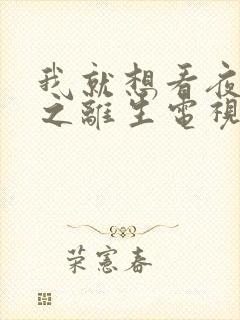 我就想看夜
之離生電視
荣憲春